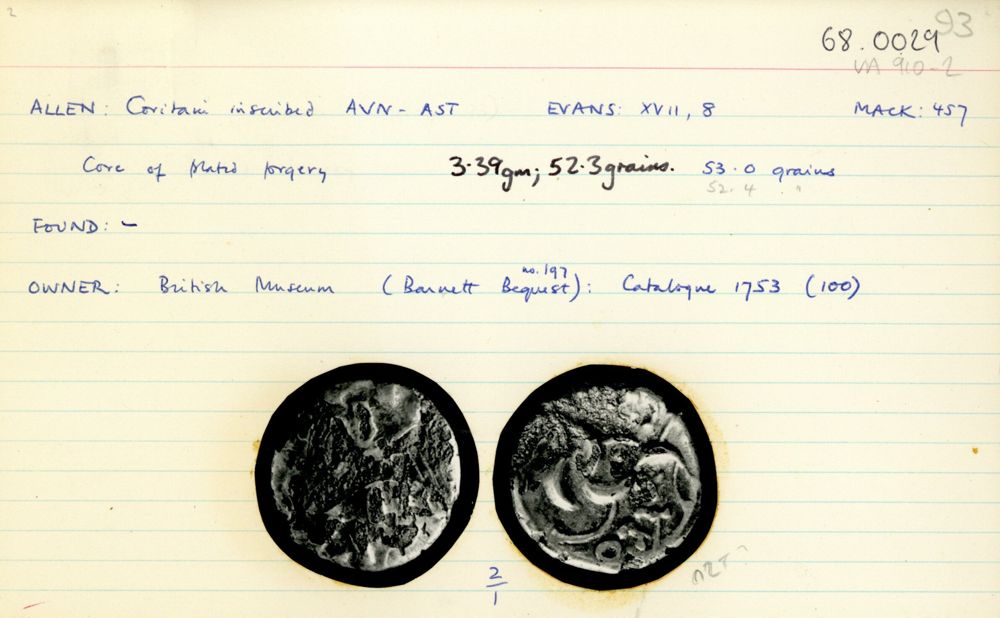 2
93
68.0029
VA 910-2
ALLEN: Coritani inscribed AVN - AST EVANS: XVII, 8 MACK: 457
Core of plated forgery 3.39gm; 52.3grains. 53.0 grains
52.4 "
FOUND: -
no. 197
OWNER: British Museum (Barnett Bequest): Catalogue 1753 (100)
2
1